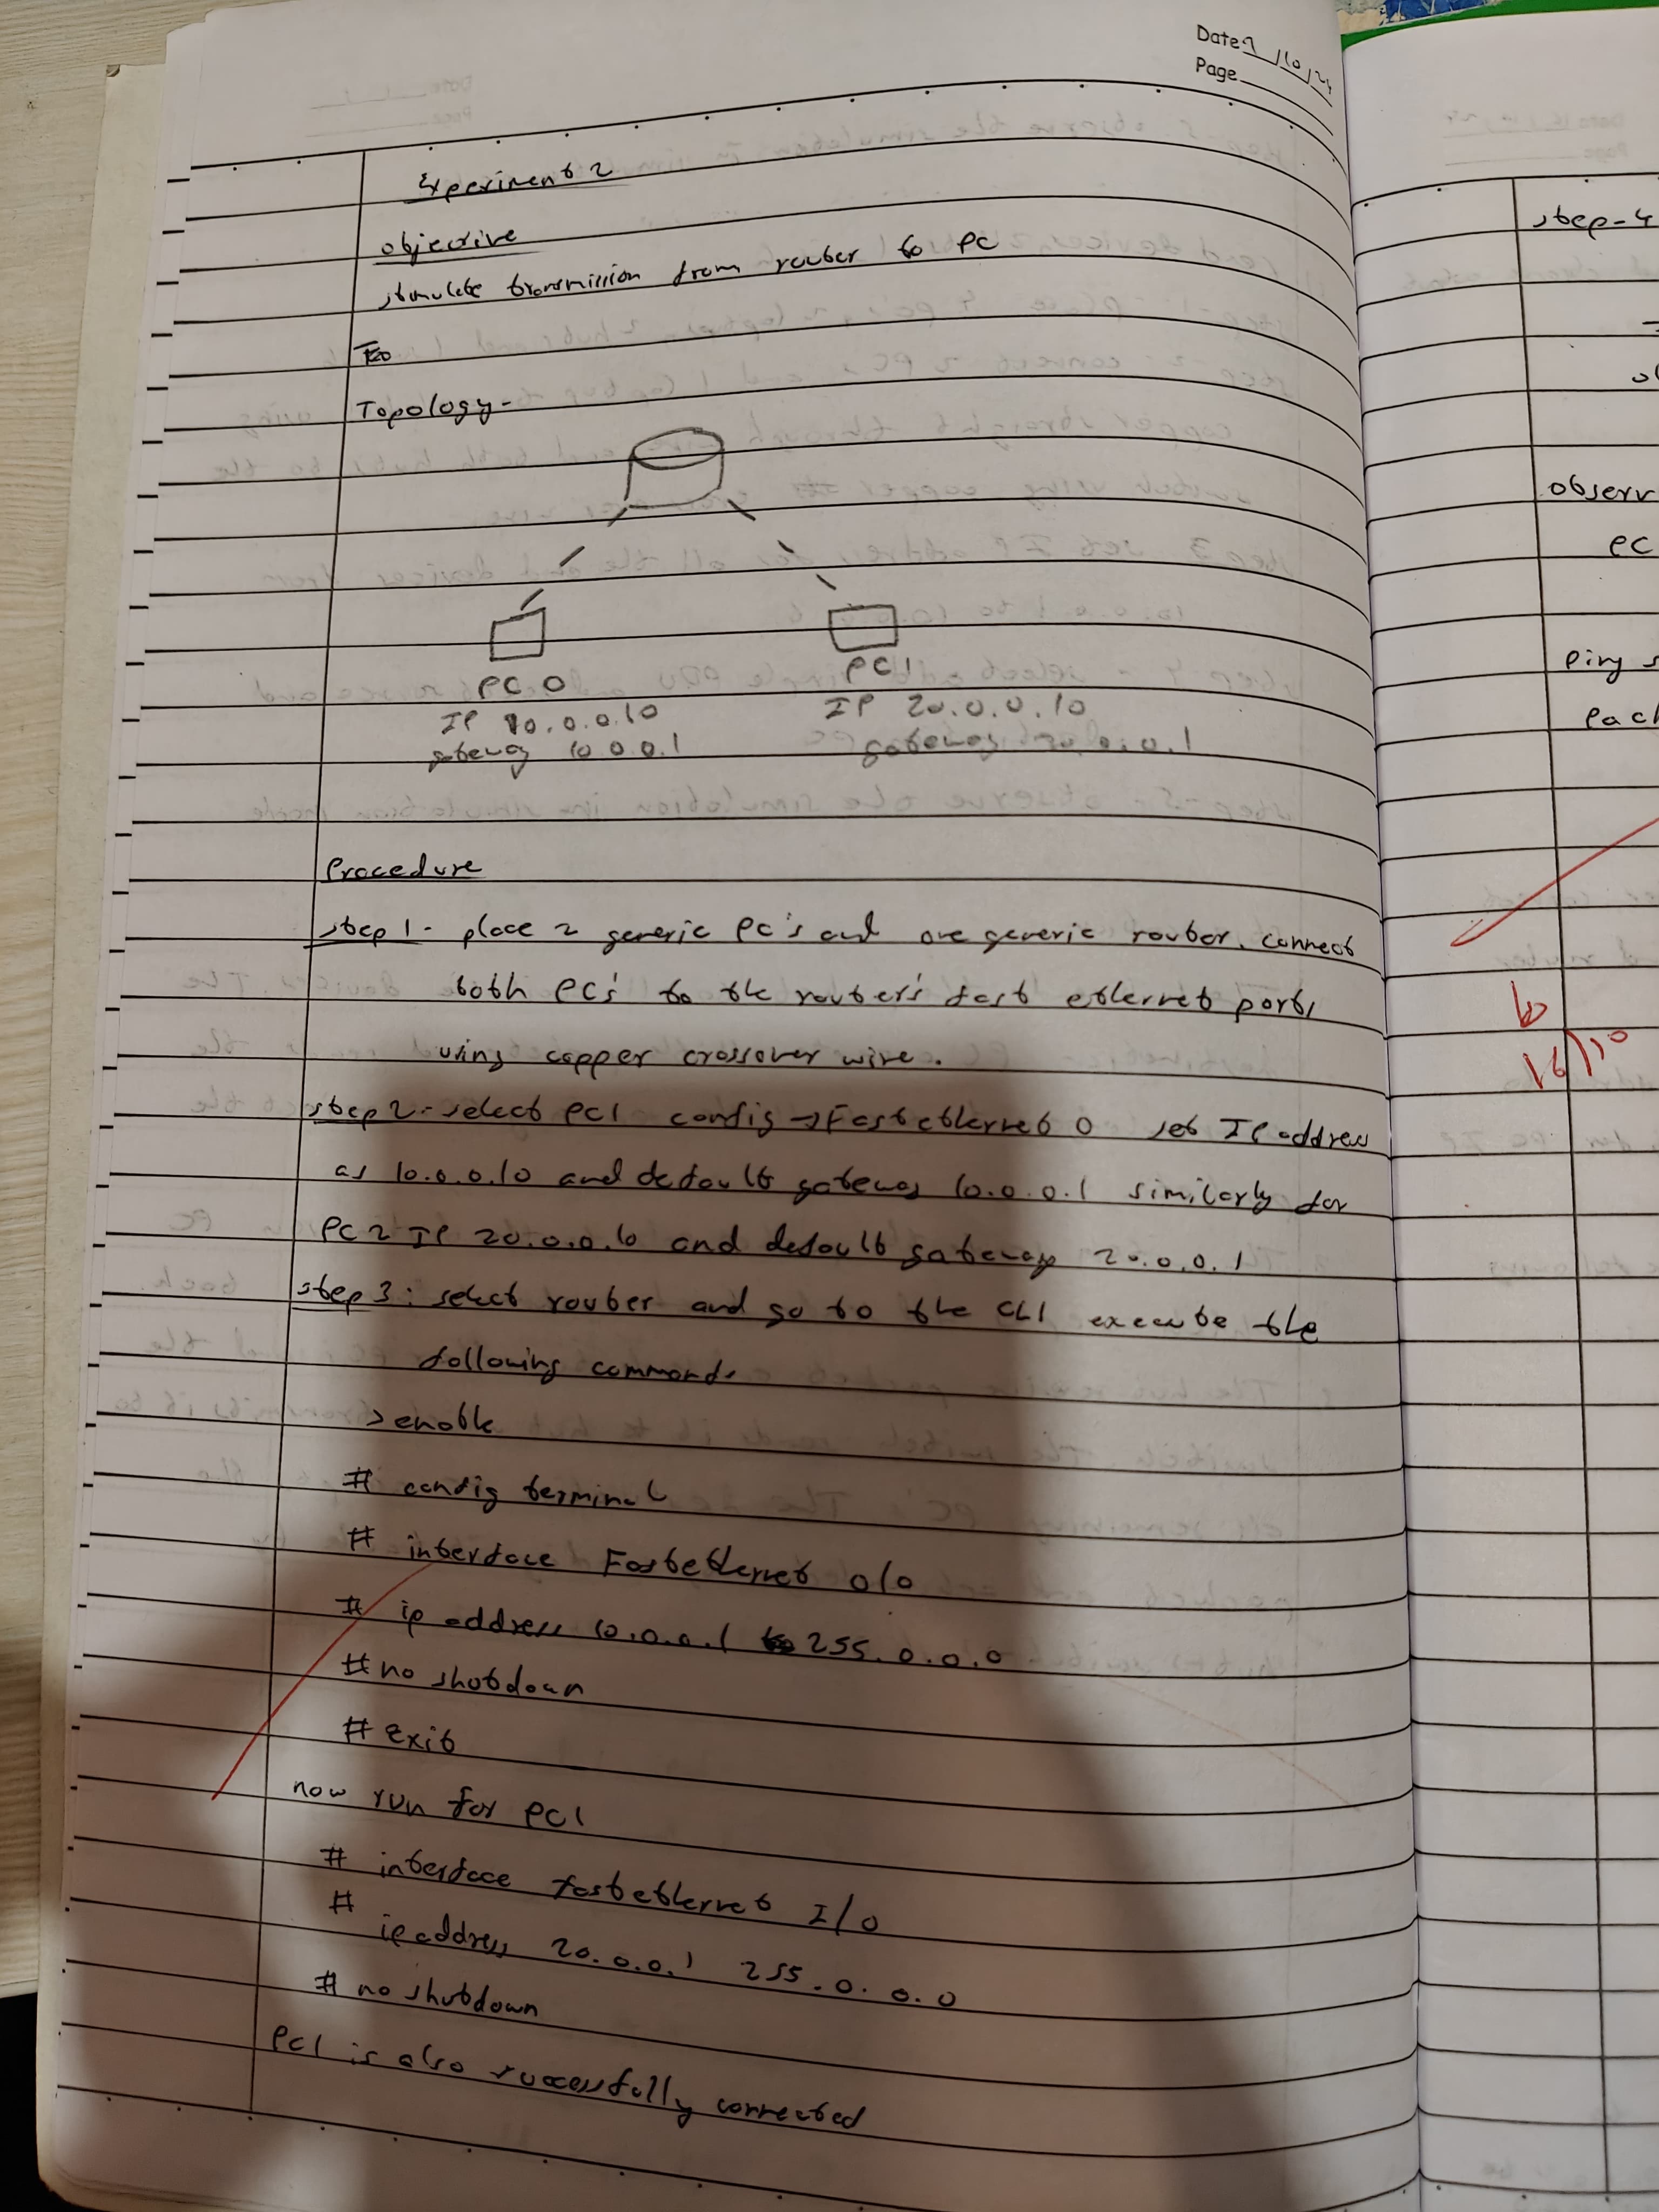 Date 9/10/24
Page
Experiment 2
objective
stimulate transmission from router to PC
To
Topology-
PC 0
PC 1
IP 10.0.0.10
IP 20.0.0.10
gateway 10.0.0.1
gateway 20.0.0.1
Procedure
step 1- place 2 generic PC's and one generic router. connect
both PC's to the router's fast ethernet ports
using copper crossover wire.
step 2- select PC1 config → Fastethernet 0 set IP address
as 10.0.0.10 and default gateway 10.0.0.1 similarly for
PC2 IP 20.0.0.10 and default gateway 20.0.0.1
step 3: select router and go to the CLI execute the
following commands
> enable
# config terminal
# interface Fastethernet 0/0
# ip address 10.0.0.1 255.0.0.0
# no shutdown
# Exit
now run for PC1
# interface fastethernet I/0
#
ip address 20.0.0.1 255.0.0.0
# no shutdown
PC1 is also successfully connected
step-4
observ
PC
Ping s
Pack
16/10